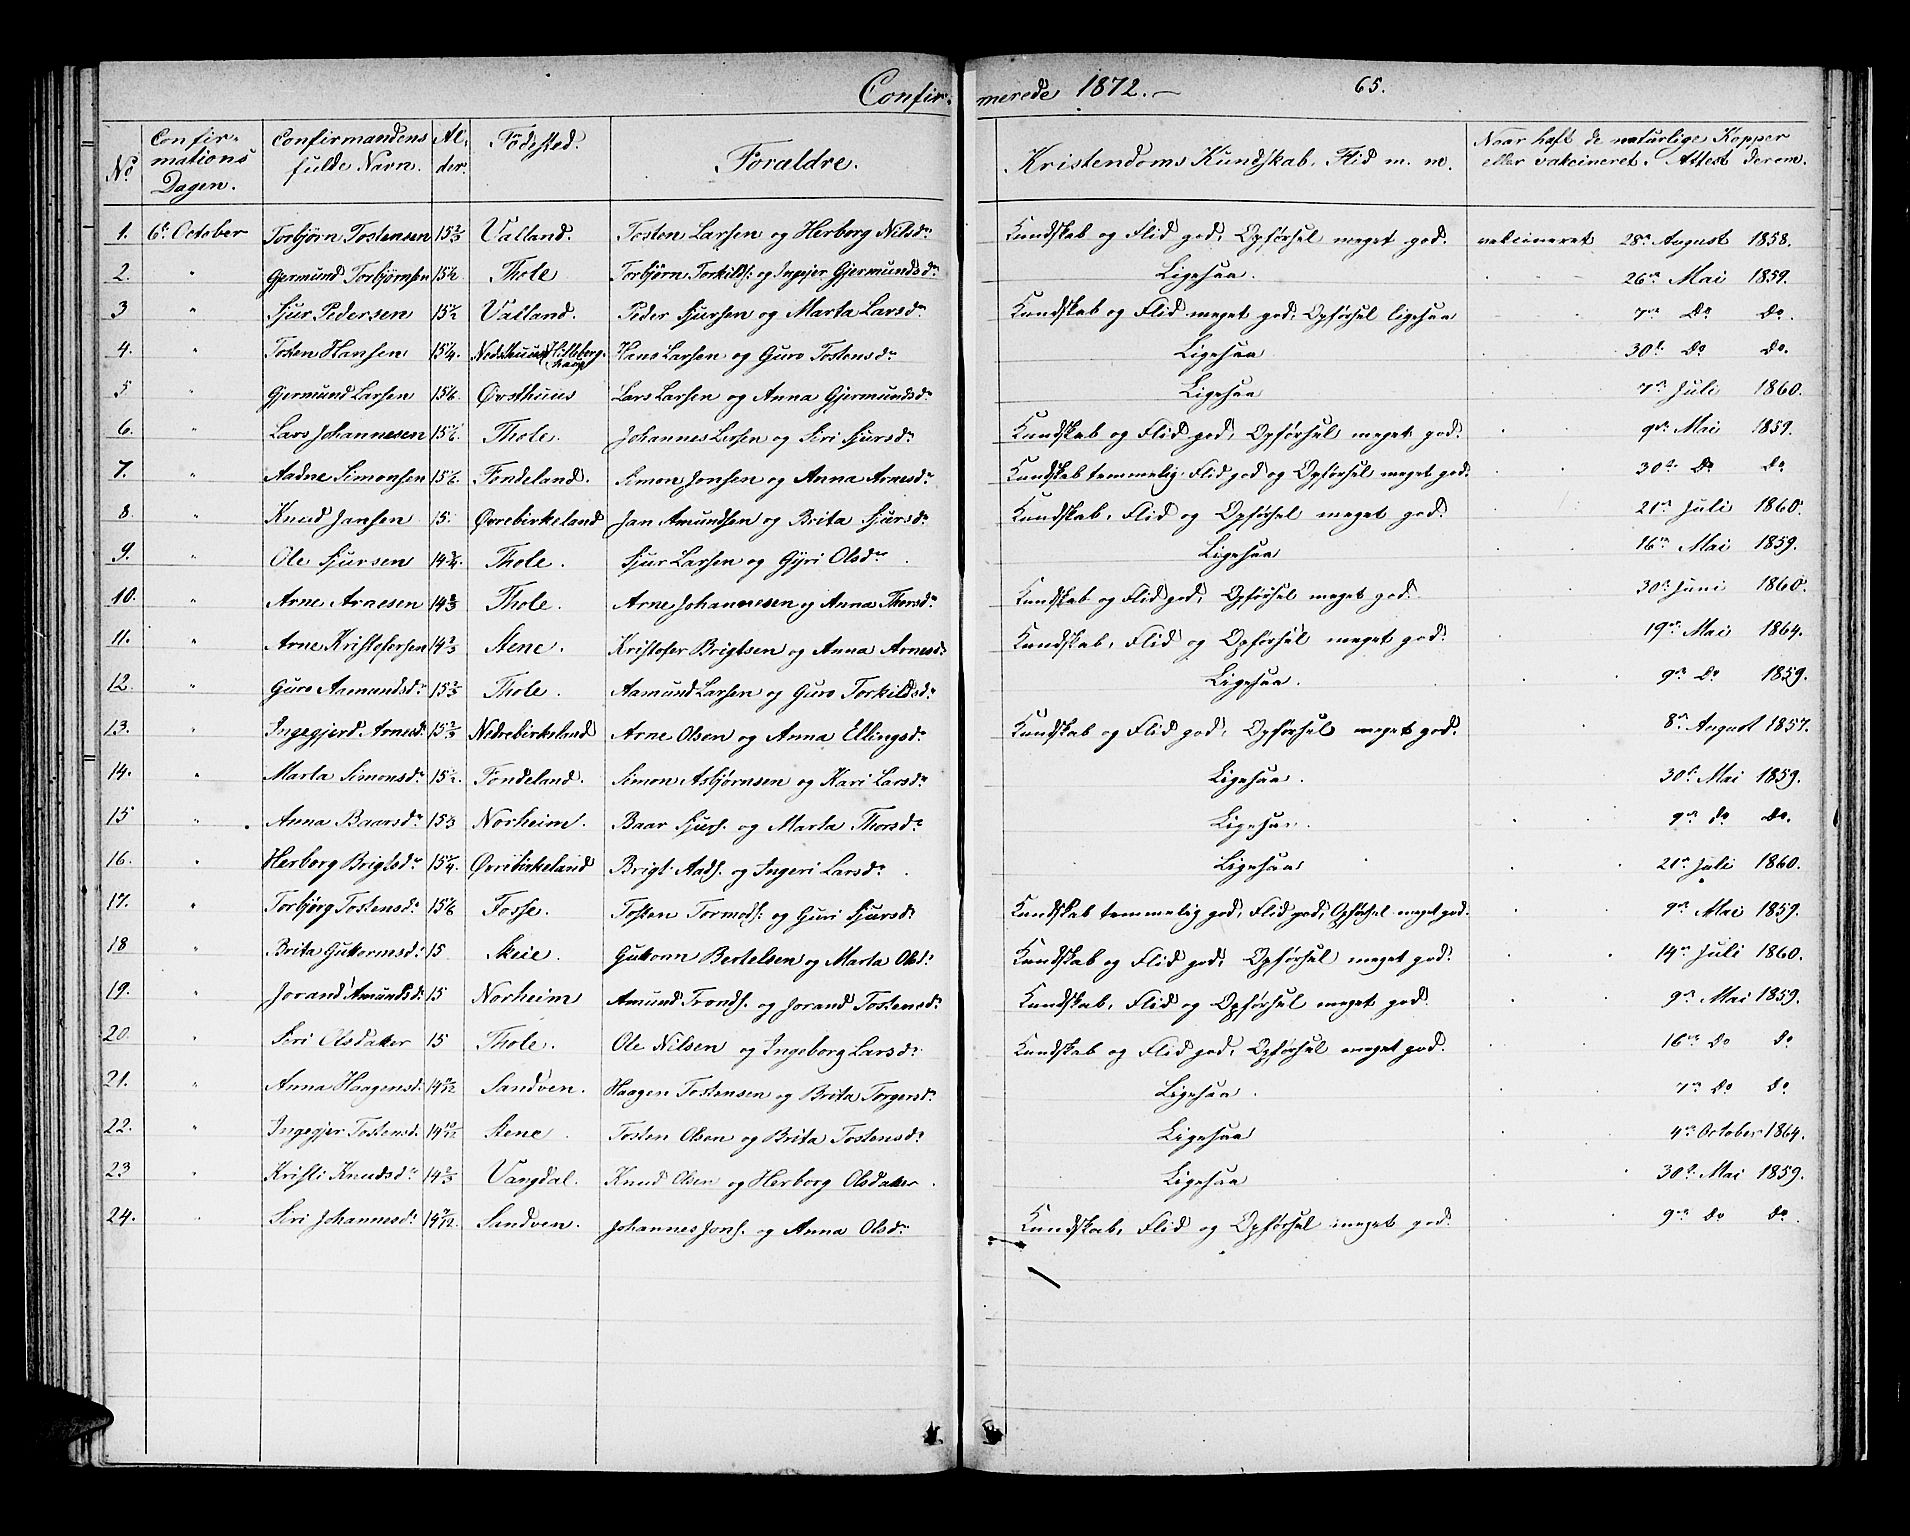 Confir- merede 1872. — 65.
No Confirmations Dagen. Confirmandens fulde Navn. Alder. Födested. Forældre. Kristendoms Kundskab, Flid m. m. Naar haft de naturlige Kopper eller vakcineret. Attest derom.
1. 6te October Torbjörn Tostensen 15 2/3 Valland. Tosten Larsen og Herborg Nilsdr Kundskab og Flid god, Opförsel meget god. vakcineret 28de August 1858.
2. " Gjermund Torbjörnsen 15 1/2 Thole Torbjörn Torkilds. og Ingejer Gjermundsdr Ligesaa. 26de Mai 1859.
3 " Sjur Pedersen 15 1/2 Valland. Peder Sjursen og Marta Larsdr Kundskab og Flid meget god, Opförsel ligesaa 7de Do Do.
4. " Tosten Hansen 15 1/4. Hans Larsen og Guro Tostensdr Ligesaa 30te Do Do.
5 " Gjermund Larsen 15 1/6. Øvsthuus Lars Larsen og Anna Gjermundsdr Ligesaa 7de Juli 1860.
6. " Lars Johannesen 15 1/6. Thole. Johannes Larsen og Siri Sjursdr Kundskab og Flid god, Opförsel meget god. 9de Mai 1859.
7. " Aadne Simonsen 15 1/6. Fondeland. Simon Jonsen og Anna Arnesdr Kundskab temmelig, Flid god og Opförsel meget god. 30te Do Do
8. " Knud Jansen 15. Øvrebirkeland Jan Amundsen og Brita Sjursdr Kundskab, Flid og Opförsel meget god. 21de Juli 1860.
9. " Ole Sjursen 14 3/4. Thole. Sjur Larsen og Gyri Olsdr Ligesaa 16de Mai 1859.
10. " Arne Arnesen 14 2/3 Thole. Arne Johannesen og Anna Thorsdr Kundskab og Flid god, Opförsel meget god. 30te Juni 1860.
11. " Arne Kristofersen 14 2/3 Stene. Kristofer Brigtsen og Anna Arnesdr Kundskab, Flid og Opförsel meget god. 19de Mai 1864.
12. " Guro Aamundsdr 15 2/3 Thole. Aamund Larsen og Guro Torkildsdr Ligesaa. 9de Do 1859.
13. " Ingegjerd Arnesd. 15 2/3 Nedrebirkeland Arne Olsen og Anna Ellingsdr Kundskab og Flid god, Opförsel meget god. 8de August 1857.
14. " Marta Simonsdr 15 1/2. Fondeland. Simon Asbjörnsen og Kari Larsdr Ligesaa. 30te Mai 1859.
15 " Anna Baarsdr 15 1/3 Norheim. Baar Sjurs. og Marta Thorsdr Ligesaa. 9de do Do.
16. " Herborg Brigtsdr 15 1/4. Øvrebirkeland Brigt Aads. og Ingeri Larsdr Ligesaa 21de Juli 1860.
17. " Torbjörg Tostensdr 15 1/6 Fosse. Tosten Tormods. og Guri Sjursdr Kundskab temmelig god, Flid god, Opförsel meget god. 9de Mai 1859.
18 " Brita Guttormsdr 15 Skeie. Guttorm Bertelsen og Marta Olsdr Kundskab og Flid god, Opförsel meget god. 14de Juli 1860.
19. " Jorand Amundsdr 15 Norheim Amund Tronds. og Jorand Tostensdr Kundskab, Flid og Opförsel meget god. 9de Mai 1859.
20. " Siri Olsdatter 15 Thole. Ole Nilsen og Ingeborg Larsdr Kundskab og Flid god, Opförsel meget god. 16de Do do
21. " Anna Haagensd. Sandven. Haagen Tostensen og Brita Torgersdr Ligesaa. 7de do do
22. " Ingegjer Tostensd. 14 10/12 Stene Tosten Olsen og Brita Tostensdr Ligesaa 4de October 1864.
23 " Kristi Knudsdr 14 2/3 Vangdal. Knud Olsen og Herborg Olsdatter. Ligesaa 30te Mai 1859.
24. " Siri Johannesdr 14 7/12 Sandven. Johannes Jons. og Anna Olsdr Kundskab, Flid og Opförsel meget god. 9de do do.